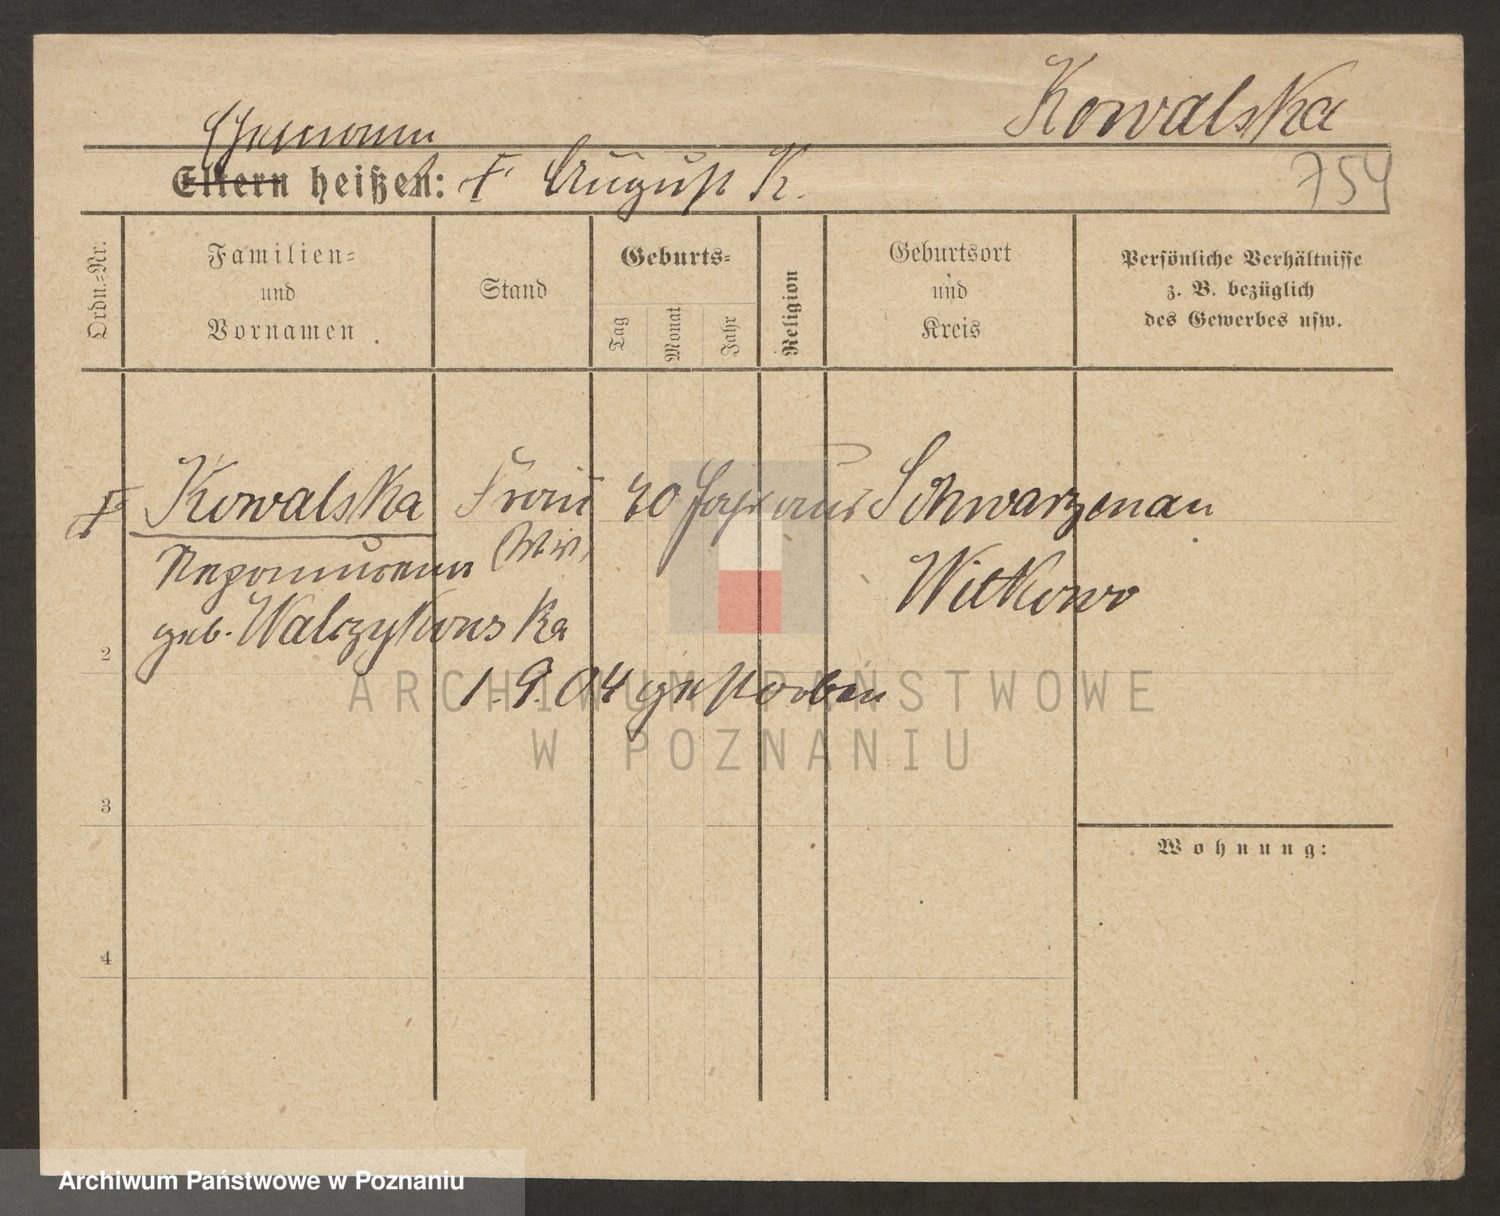 Kowalska
Ehemann
Eltern heißen: † August K.
754
Ordn.-Nr.
Familien-
und
Vornamen
Stand
Geburts-
Tag
Monat
Jahr
Religion
Geburtsort
und
Kreis
Persönliche Verhältnisse
z. B. bezüglich
des Gewerbes usw.
† Kowalska Frau Jahr aus Schwarzenau
Nepomucena (Ww) Witkowo
2 geb. Walczykowska
1.9.04 gestorben
3
Wohnung:
4
ARCHIWUM PAŃSTWOWE
W POZNANIU
Archiwum Państwowe w Poznaniu